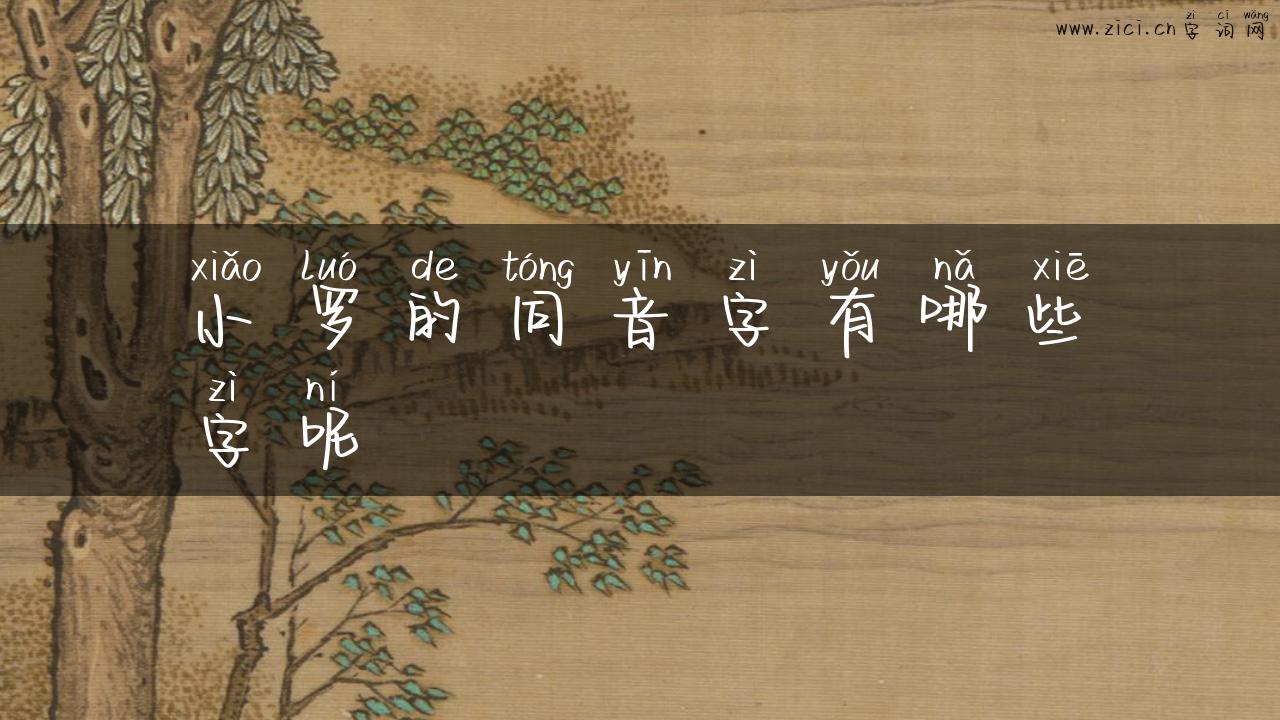 zì cí wǎng
www.zici.cn 字词网
xiǎo luó de tóng yīn zì yǒu nǎ xiē
小罗的同音字有哪些
zì ní
字呢